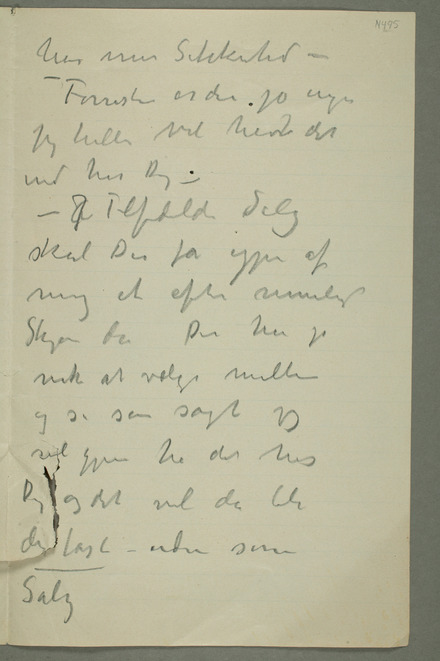 N495
har mer Sikkerhed –
– Forresten er der jo ingen
jeg heller vil have det
end hos Dig –
– I Tilfælde Salg
skal Du få af
mig et efter rimeligt
Skjøn da Du har jo
nok at vælge mellem
og så som sagt jeg
vil gjerne ha det hos
Dig og det vil da bli
det – uden som
Salg